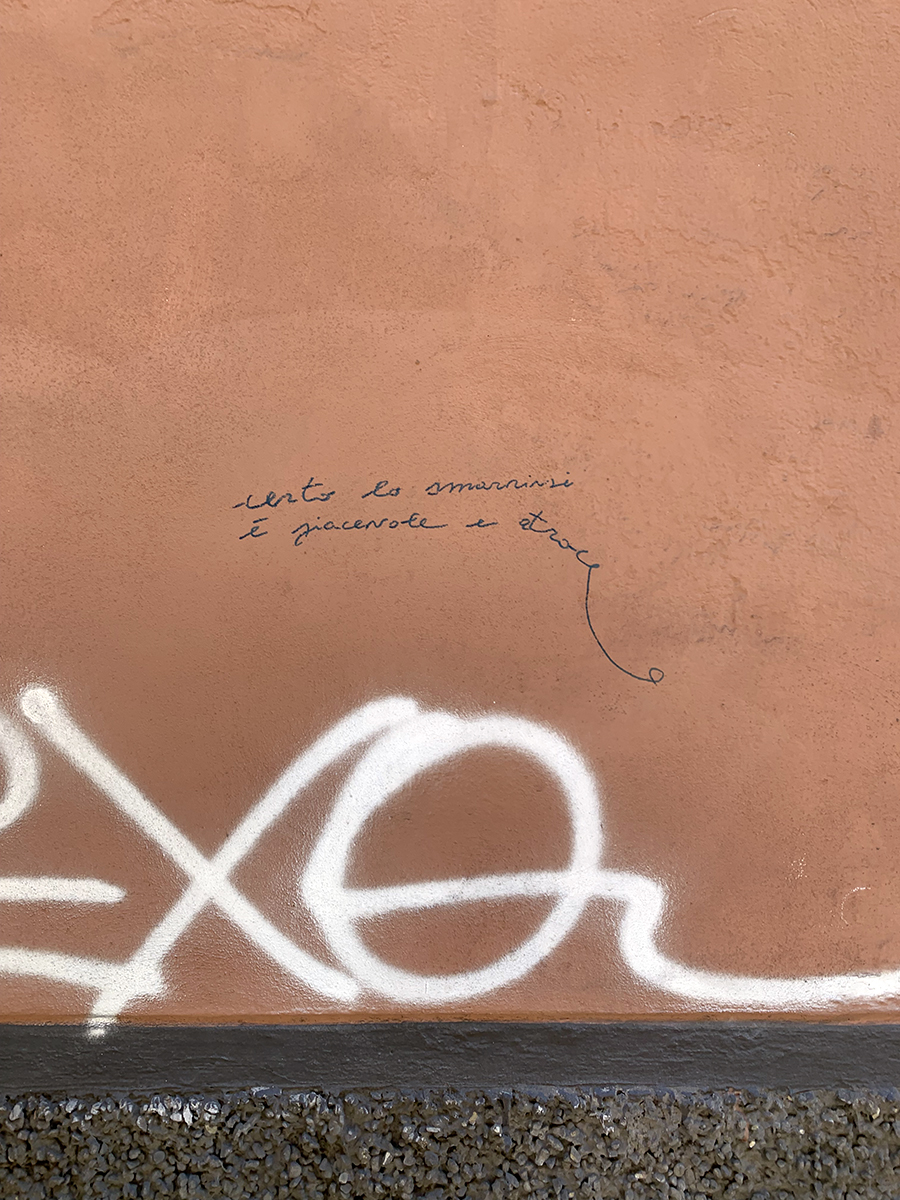 certo lo smarrirsi
è piacevole e atroce